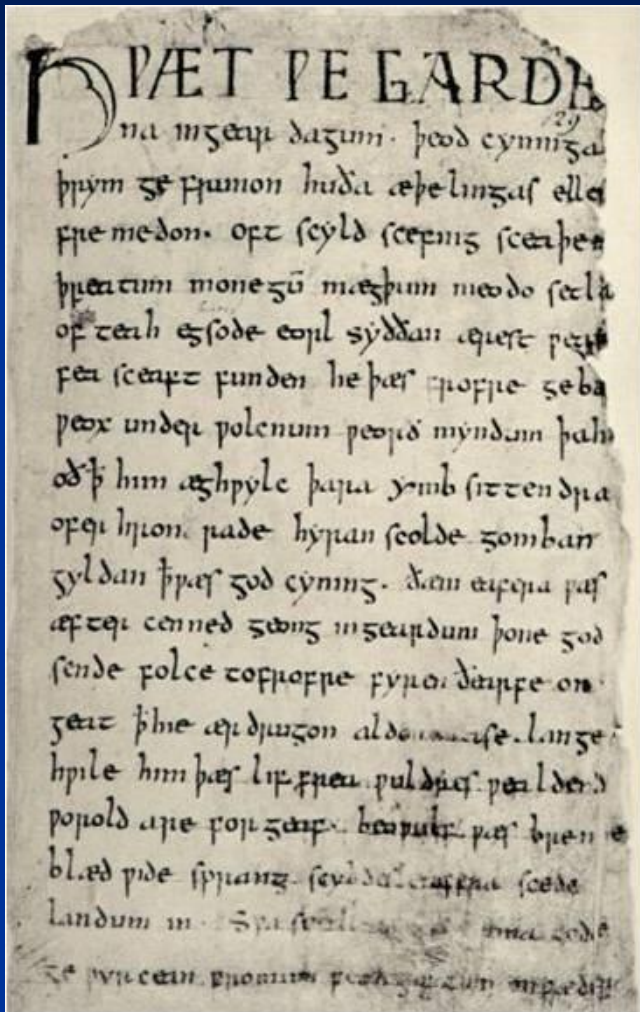 HǷÆT ǷE GARDE
29
na ingear dagum. þeod cyninga
þrym ge frunon huða æþelingas elle
fremedon. oft scyld scefing sceaþe
þreatum monegū mægþum meodo setla
of teah egsode eorl syððan ærest ƿear
fea sceaft funden he þæs frofre geba
ƿeox under ƿolcnum ƿeorð myndum þah
oð ꝥ him æghƿylc þara ymb sittendra
ofer hron rade hyran scolde gomban
gyldan ꝥ ƿæs god cyning. ðæm eafera ƿæs
æfter cenned geong ingeardum þone god
sende folce tofrofre fyren ðearfe on
geat ꝥ hie ær drugon lange
hƿile him þæs lif frea ƿuldres ƿealdend
ƿorold are for geaf. beoƿulf ƿæs breme
blæd ƿide sprang eafera scede
landum in. Sƿa gode
ge ƿyrcean fromum